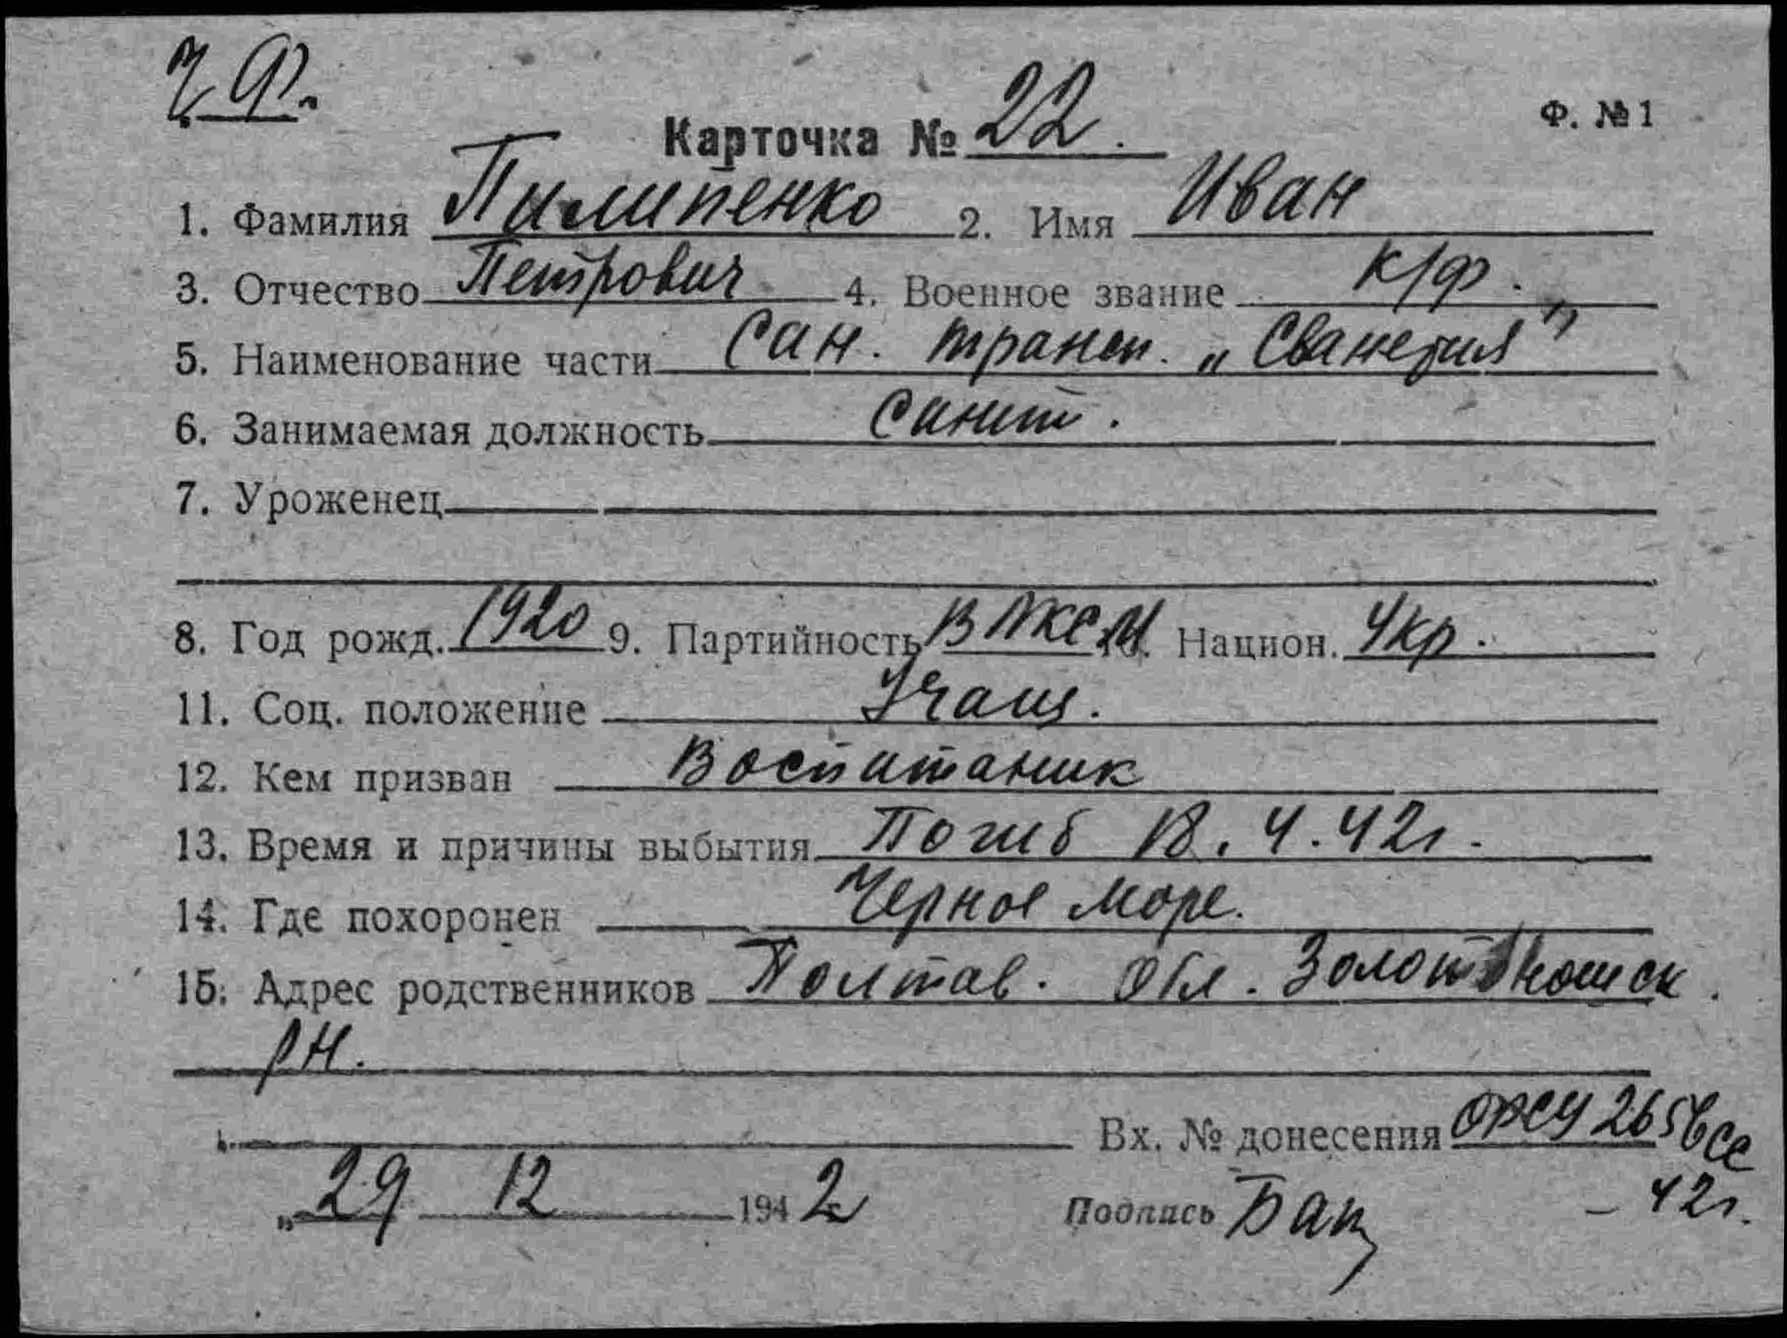 Ч.Ф.
Ф. №1
Карточка № 22.
1. Фамилия Пилипенко 2. Имя Иван
3. Отчество Петрович 4. Военное звание к/ф.
5. Наименование части Сан. трансп. „Сванетия"
6. Занимаемая должность санит.
7. Уроженец
8. Год рожд. 1920 9. Партийность ВЛКСМ 10. Национ. Укр.
11. Соц. положение Учащ.
12. Кем призван Воспитаник
13. Время и причины выбытия Погиб 18.4.42г.
14. Где похоронен Черное море.
15. Адрес родственников Полтав. обл. Золотоношск.
рн.
Вх. № донесения ОРСУ 2656сс
„29 12 1942 Подпись – 42г.